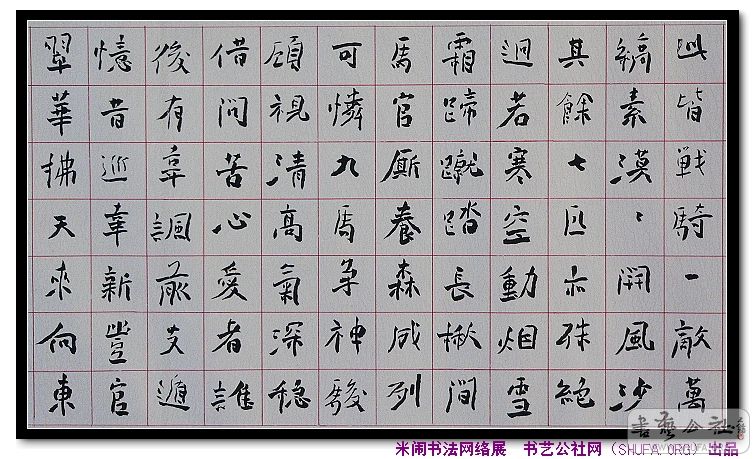 此皆戦騎一敵萬
縞素漠〻開風沙
其餘七匹亦殊絕
迥若寒空動烟雪
霜蹄蹴踏長楸間
馬官廝養森成列
可憐九馬爭神駿
顧視清高氣深穩
借問苦心愛者誰
後有韋諷前支遁
憶昔巡幸新豐宮
翠華拂天來向東
米闹书法网络展 书艺公社网（SHUFA.ORG）出品
書藝公社